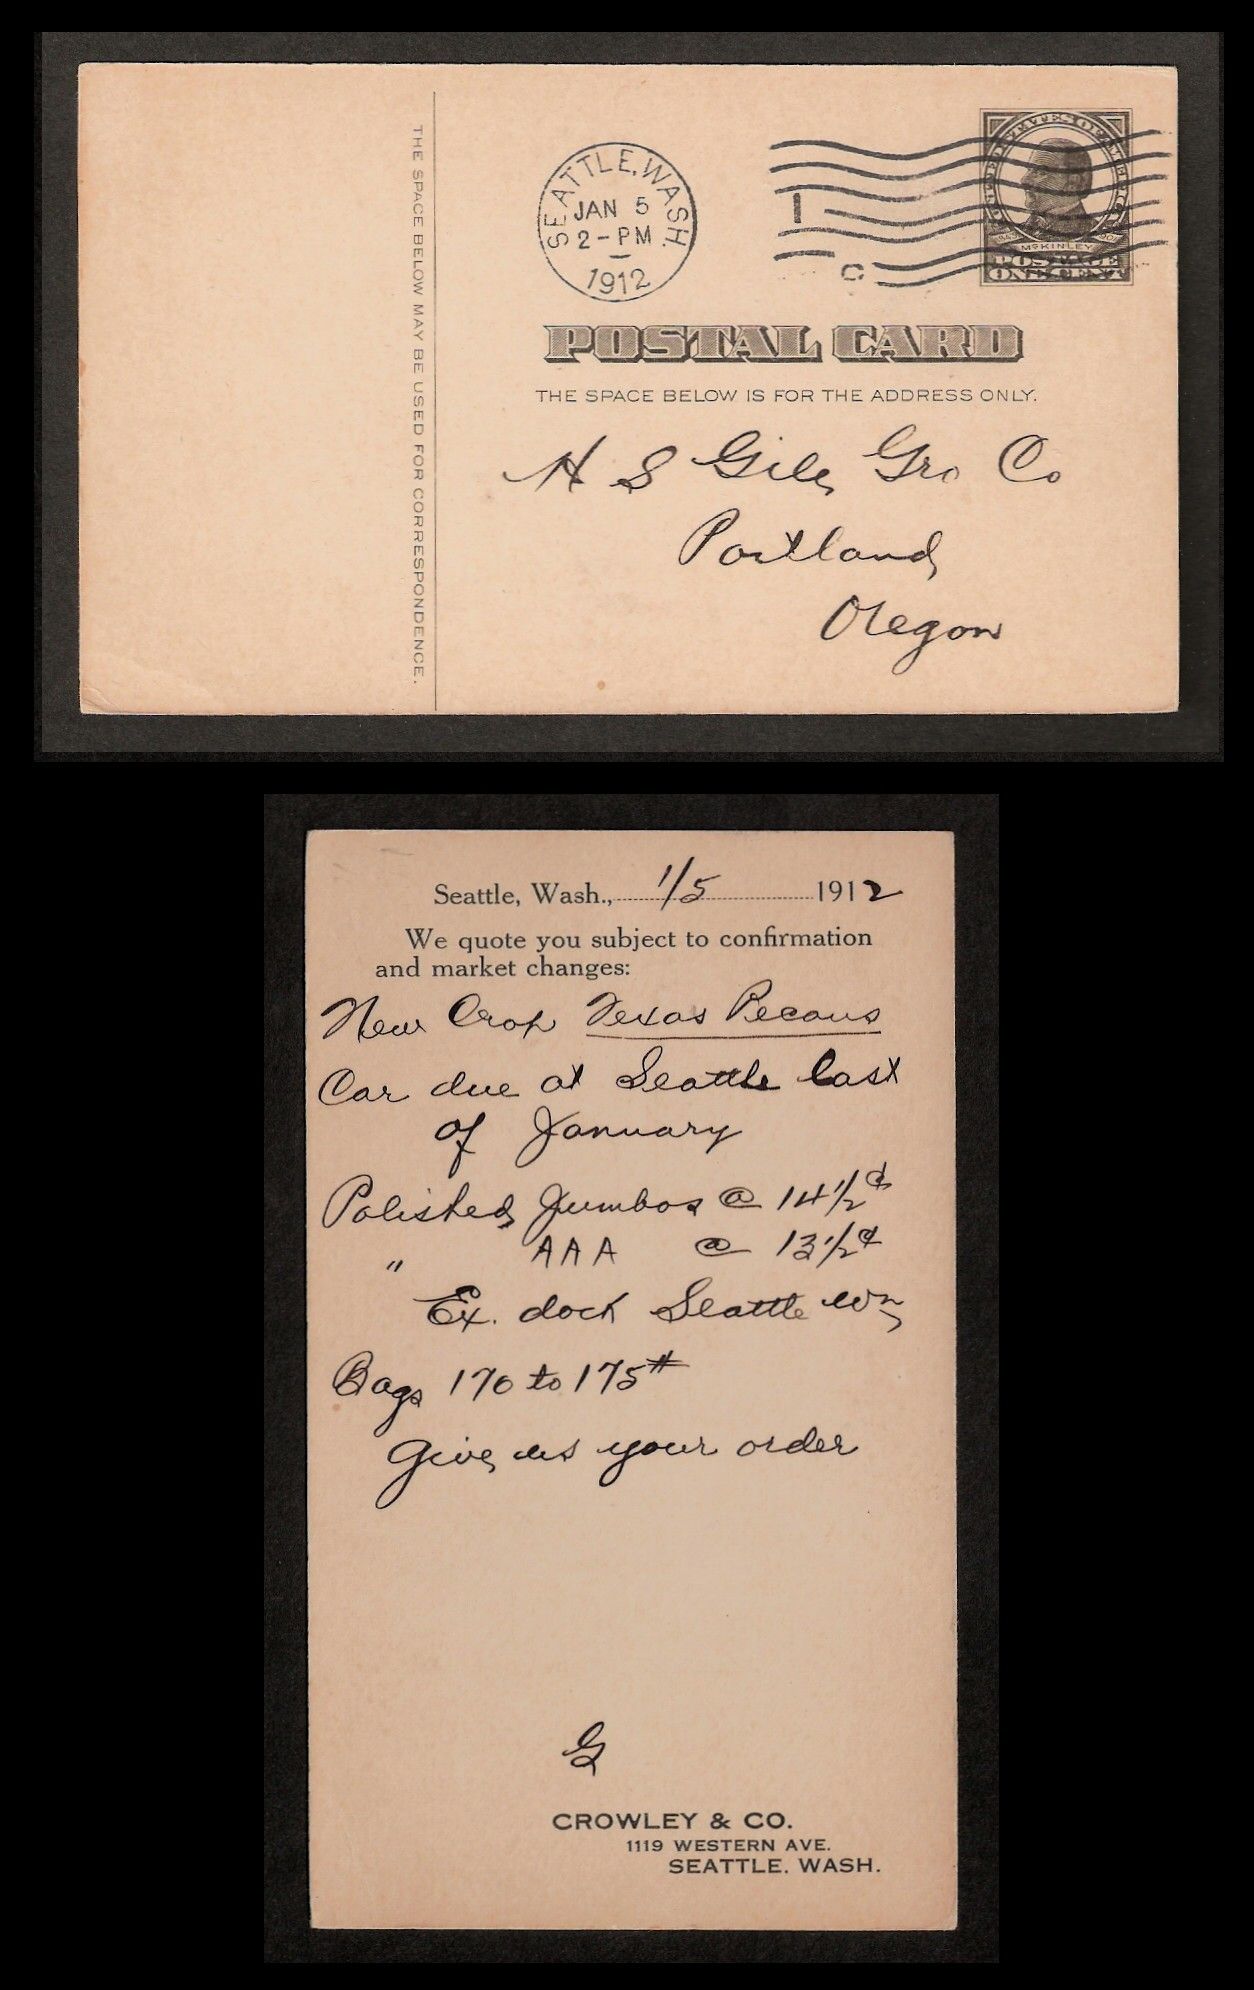 THE SPACE BELOW MAY BE USED FOR CORRESPONDENCE.
SEATTLE, WASH.
JAN 5
2-PM
1912
1
C
UNITED STATES OF AMERICA
McKINLEY
POSTAGE
ONE CENT
POSTAL CARD
THE SPACE BELOW IS FOR THE ADDRESS ONLY.
H S Gile Gro Co
Portland
Oregon
Seattle, Wash., 1/5 1912
We quote you subject to confirmation
and market changes:
New Crop Texas Pecans
Car due at Seattle last
of January
Polished Jumbos @ 14 1/2 ¢
" AAA @ 13 1/2 ¢
Ex. dock Seattle Wn
Bags 170 to 175 #
Give us your order
G
CROWLEY & CO.
1119 WESTERN AVE.
SEATTLE. WASH.